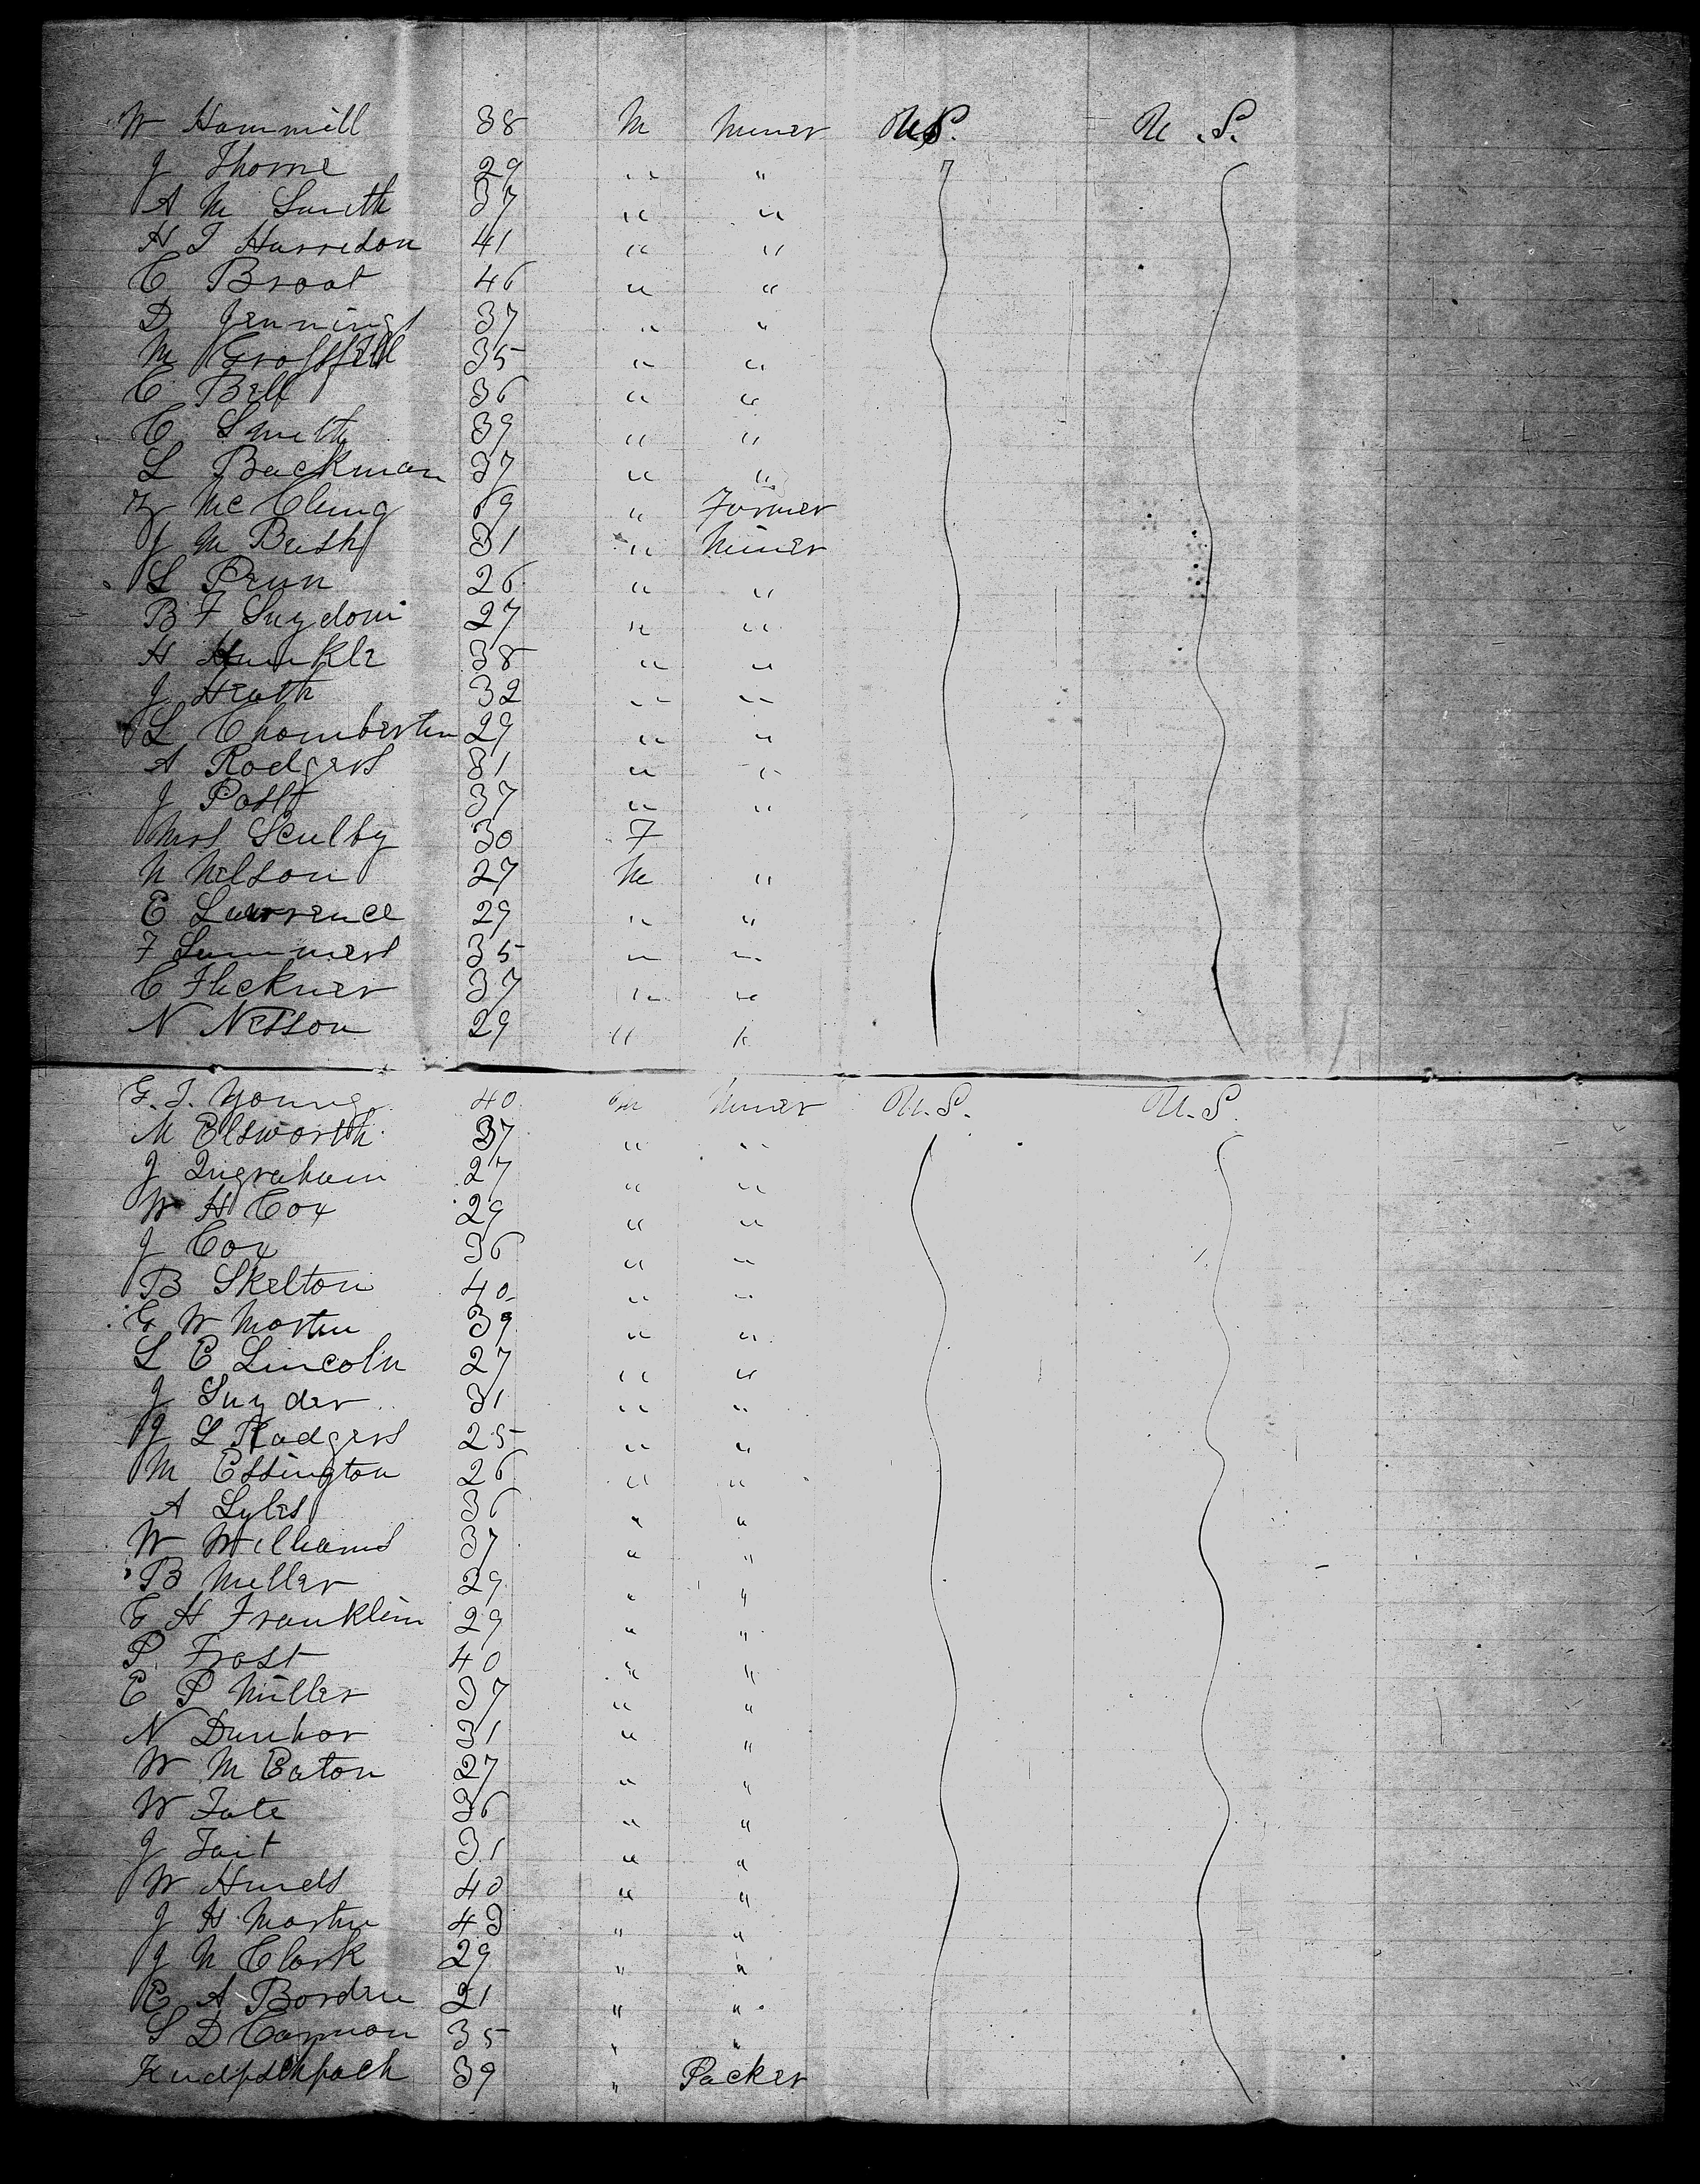 W Hammill 38 M Miner U.S. U.S.
J Thorne 29 " "
A M Smith 37 " "
H T Harridon 41 " "
C Broat 46 " "
D Jennings 37 " "
M 35 " "
C Bell 36 " "
C Smith 39 " "
L Backman 37 " "
Z McClung 69 " Farmer
J M Bush 31 " Miner
L Penn 26 " "
B F Suydom 27 " "
H Hunkle 38 " "
J Heath 32 " "
L Chamberlin 29 " "
A Rodgers 31 " "
J Post 37 " "
Mrs Sculby 30 F
N Nelson 27 M "
E Lawrence 29 " "
F Summers 35 " "
C Fleckner 37 " "
N Nelson 29 " "
G. T. Young 40 M Miner U.S. U.S.
M Elsworth 37 " "
J Ingraham 27 " "
W H Cox 29 " "
J Cox 36 " "
B Skelton 40 " "
G W Martin 39 " "
L E Lincoln 27 " "
J Snyder 31 " "
J L Rodgers 25 " "
M Essington 26 " "
A Lyles 36 " "
W Williams 37 " "
B Miller 29 " "
G H Franklin 29 " "
P. Frost 40 " "
E P Miller 37 " "
N Dunbar 31 " "
W M Eaton 27 " "
W Tate 36 " "
J Tait 31 " "
W Hinds 40 " "
J H Martin 43 " "
J N Clark 29 " "
E A Borden 21 " "
S D Carmon 35 " "
39 " Packer